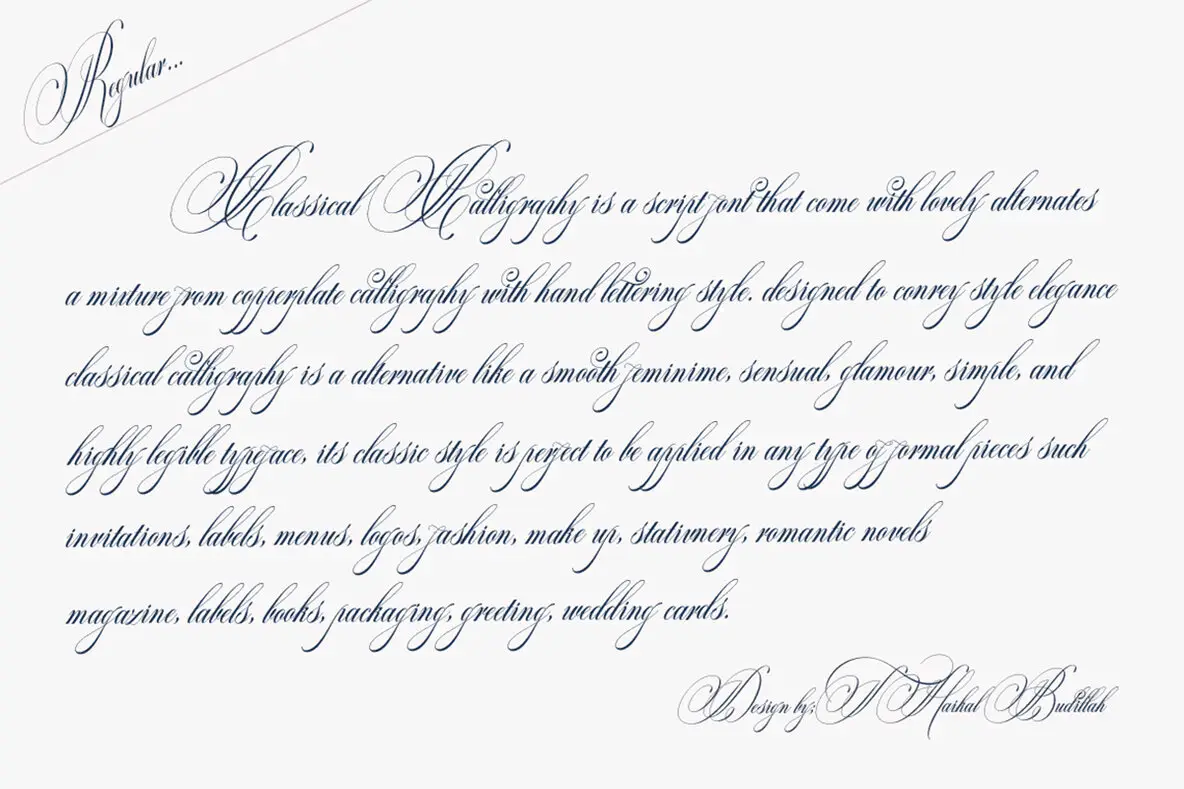 Regular...
Classical Calligraphy is a script font that come with lovely alternates
a mixture from copperplate calligraphy with hand lettering style. designed to convey style elegance
classical calligraphy is a alternative like a smooth feminime, sensual, glamour, simple, and
highly legible typeface, its classic style is perfect to be applied in any type of formal pieces such
invitations, labels, menus, logos, fashion, make up, stativnery, romantic novels
magazine, labels, books, packaging, greeting, wedding cards.
Design by; Haikal Budillah